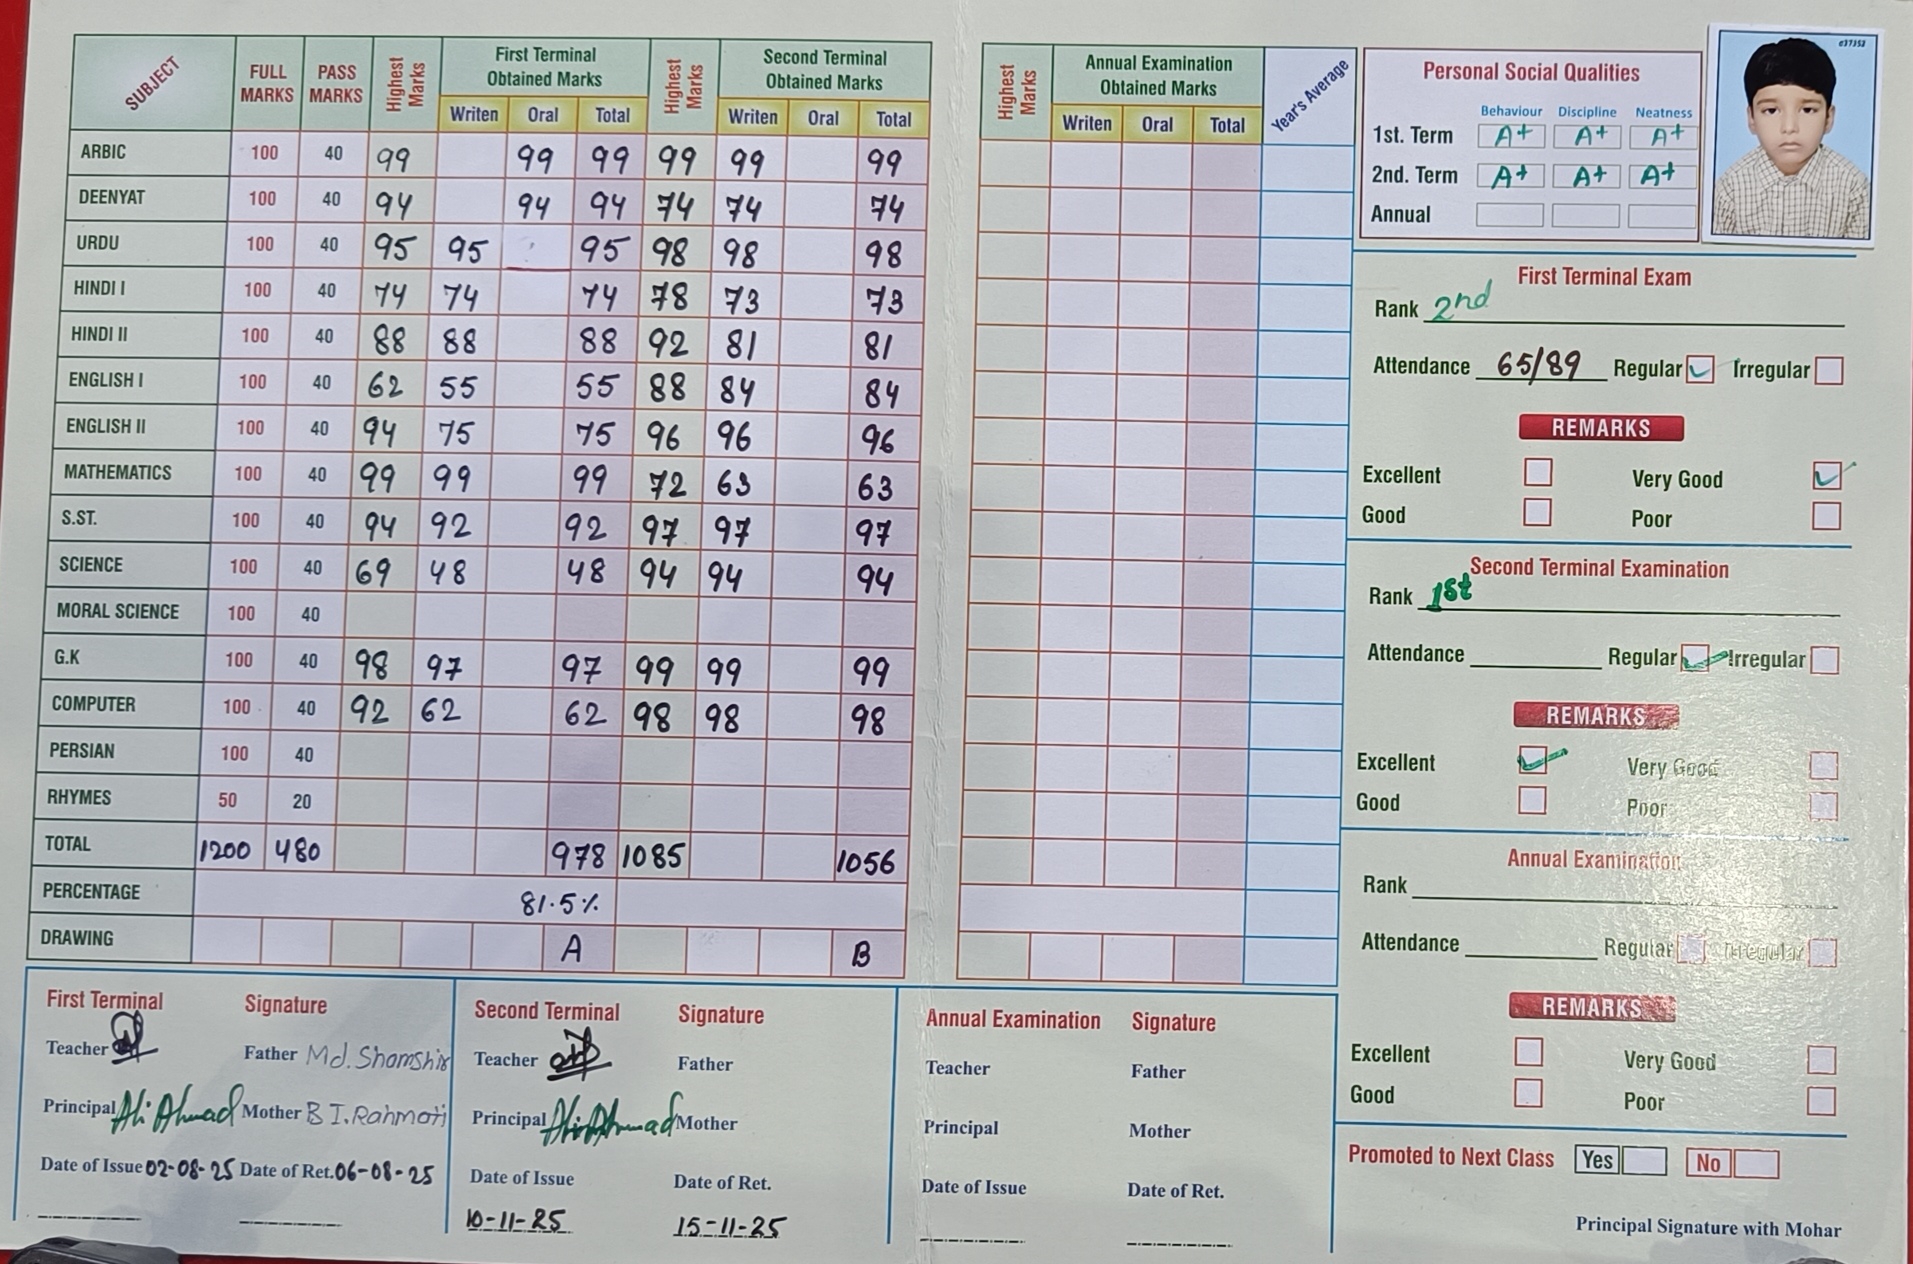 SUBJECT FULL MARKS PASS MARKS Highest Marks First Terminal Obtained Marks Writen Oral Total Highest Marks Second Terminal Obtained Marks Writen Oral Total
ARBIC 100 40 99 99 99 99 99 99
DEENYAT 100 40 94 94 94 74 74 74
URDU 100 40 95 95 95 98 98 98
HINDI I 100 40 74 74 74 78 73 73
HINDI II 100 40 88 88 88 92 81 81
ENGLISH I 100 40 62 55 55 88 84 84
ENGLISH II 100 40 94 75 75 96 96 96
MATHEMATICS 100 40 99 99 99 72 63 63
S.ST. 100 40 94 92 92 97 97 97
SCIENCE 100 40 69 48 48 94 94 94
MORAL SCIENCE 100 40
G.K 100 40 98 97 97 99 99 99
COMPUTER 100 40 92 62 62 98 98 98
PERSIAN 100 40
RHYMES 50 20
TOTAL 1200 480 978 1085 1056
PERCENTAGE 81.5%
DRAWING A B
Highest Marks Annual Examination Obtained Marks Writen Oral Total Year's Average
First Terminal Signature
Teacher Father Md. Shamshir
Principal Ali Ahmad Mother B I. Rahmati
Date of Issue 02-08-25 Date of Ret. 06-08-25
Second Terminal Signature
Teacher Father
Principal Ali Ahmad Mother
Date of Issue Date of Ret.
10-11-25 15-11-25
Annual Examination Signature
Teacher Father
Principal Mother
Date of Issue Date of Ret.
Personal Social Qualities
Behaviour Discipline Neatness
1st. Term A+ A+ A+
2nd. Term A+ A+ A+
Annual
037352
First Terminal Exam
Rank 2nd
Attendance 65/89 Regular Irregular
REMARKS
Excellent Very Good
Good Poor
Second Terminal Examination
Rank 1st
Attendance Regular Irregular
REMARKS
Excellent Very Good
Good Poor
Annual Examination
Rank
Attendance Regular Irregular
REMARKS
Excellent Very Good
Good Poor
Promoted to Next Class Yes No
Principal Signature with Mohar